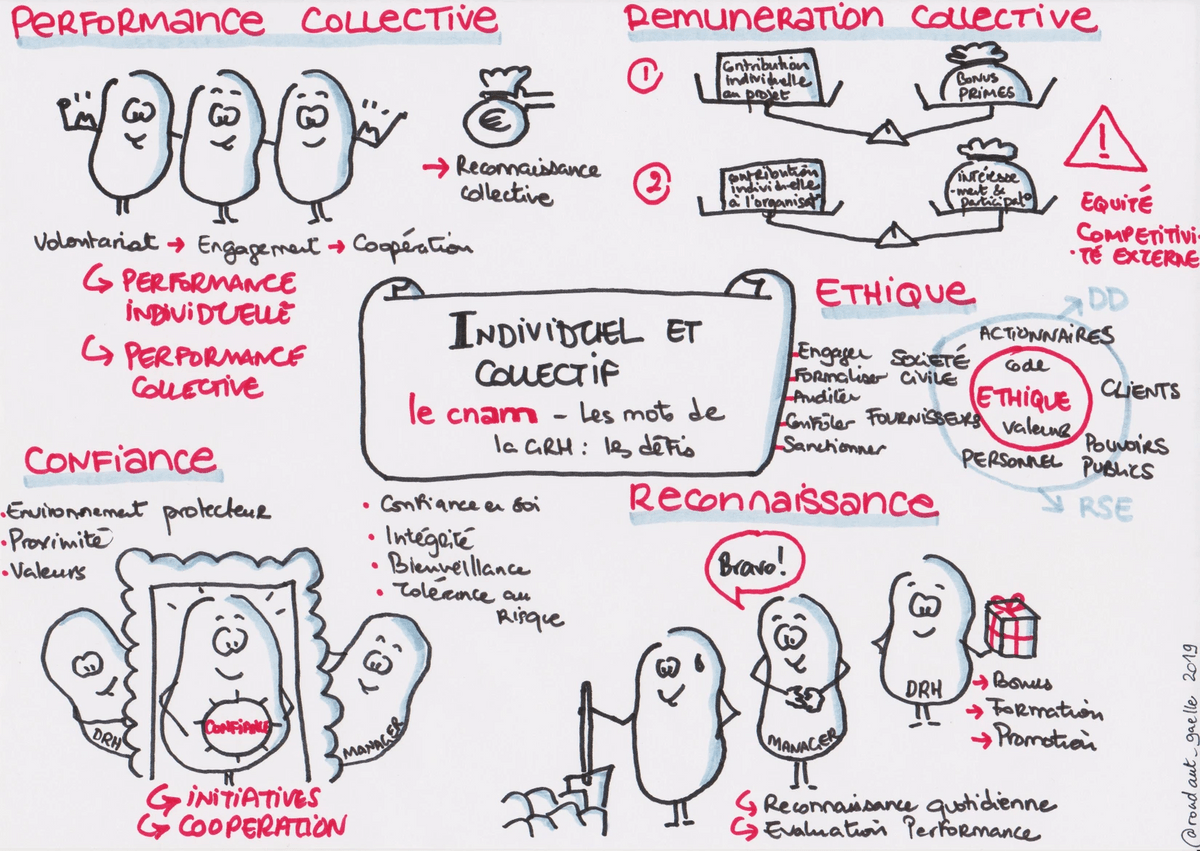 PERFORMANCE COLLECTIVE
€
→ Reconnaissance
collective
Volontariat → Engagement → Coopération
PERFORMANCE
INDIVIDUELLE
PERFORMANCE
COLLECTIVE
REMUNERATION COLLECTIVE
1
Contribution
individuelle
au projet
BONUS
PRIMES
2
Contribution
individuelle
à l'organisat°
intéresse
-ment &
participat°
!
EQUITÉ
COMPETITIVI-
TÉ EXTERNE
INDIVIDUEL ET
COLLECTIF
le cnam - Les mots de
la GRH : les défis
ETHIQUE
Engager
Formaliser
Auditer
Contrôler
Sanctionner
SOCIETÉ
CIVILE
FOURNISSEURS
ACTIONNAIRES
CLIENTS
POUVOIRS
PUBLICS
PERSONNEL
code
ETHIQUE
valeurs
→ DD
→ RSE
CONFIANCE
• Environnement protecteur
• Proximité
• Valeurs
• Confiance en soi
• Intégrité
• Bienveillance
• Tolérance au
Risque
DRH
CONFIANCE
MANAGER
INITIATIVES
COOPERATION
RECONNAISSANCE
Bravo!
MANAGER
DRH
→ Bonus
→ Formation
→ Promotion
Reconnaissance quotidienne
Evaluation Performance
@roudaut_gaelle 2019